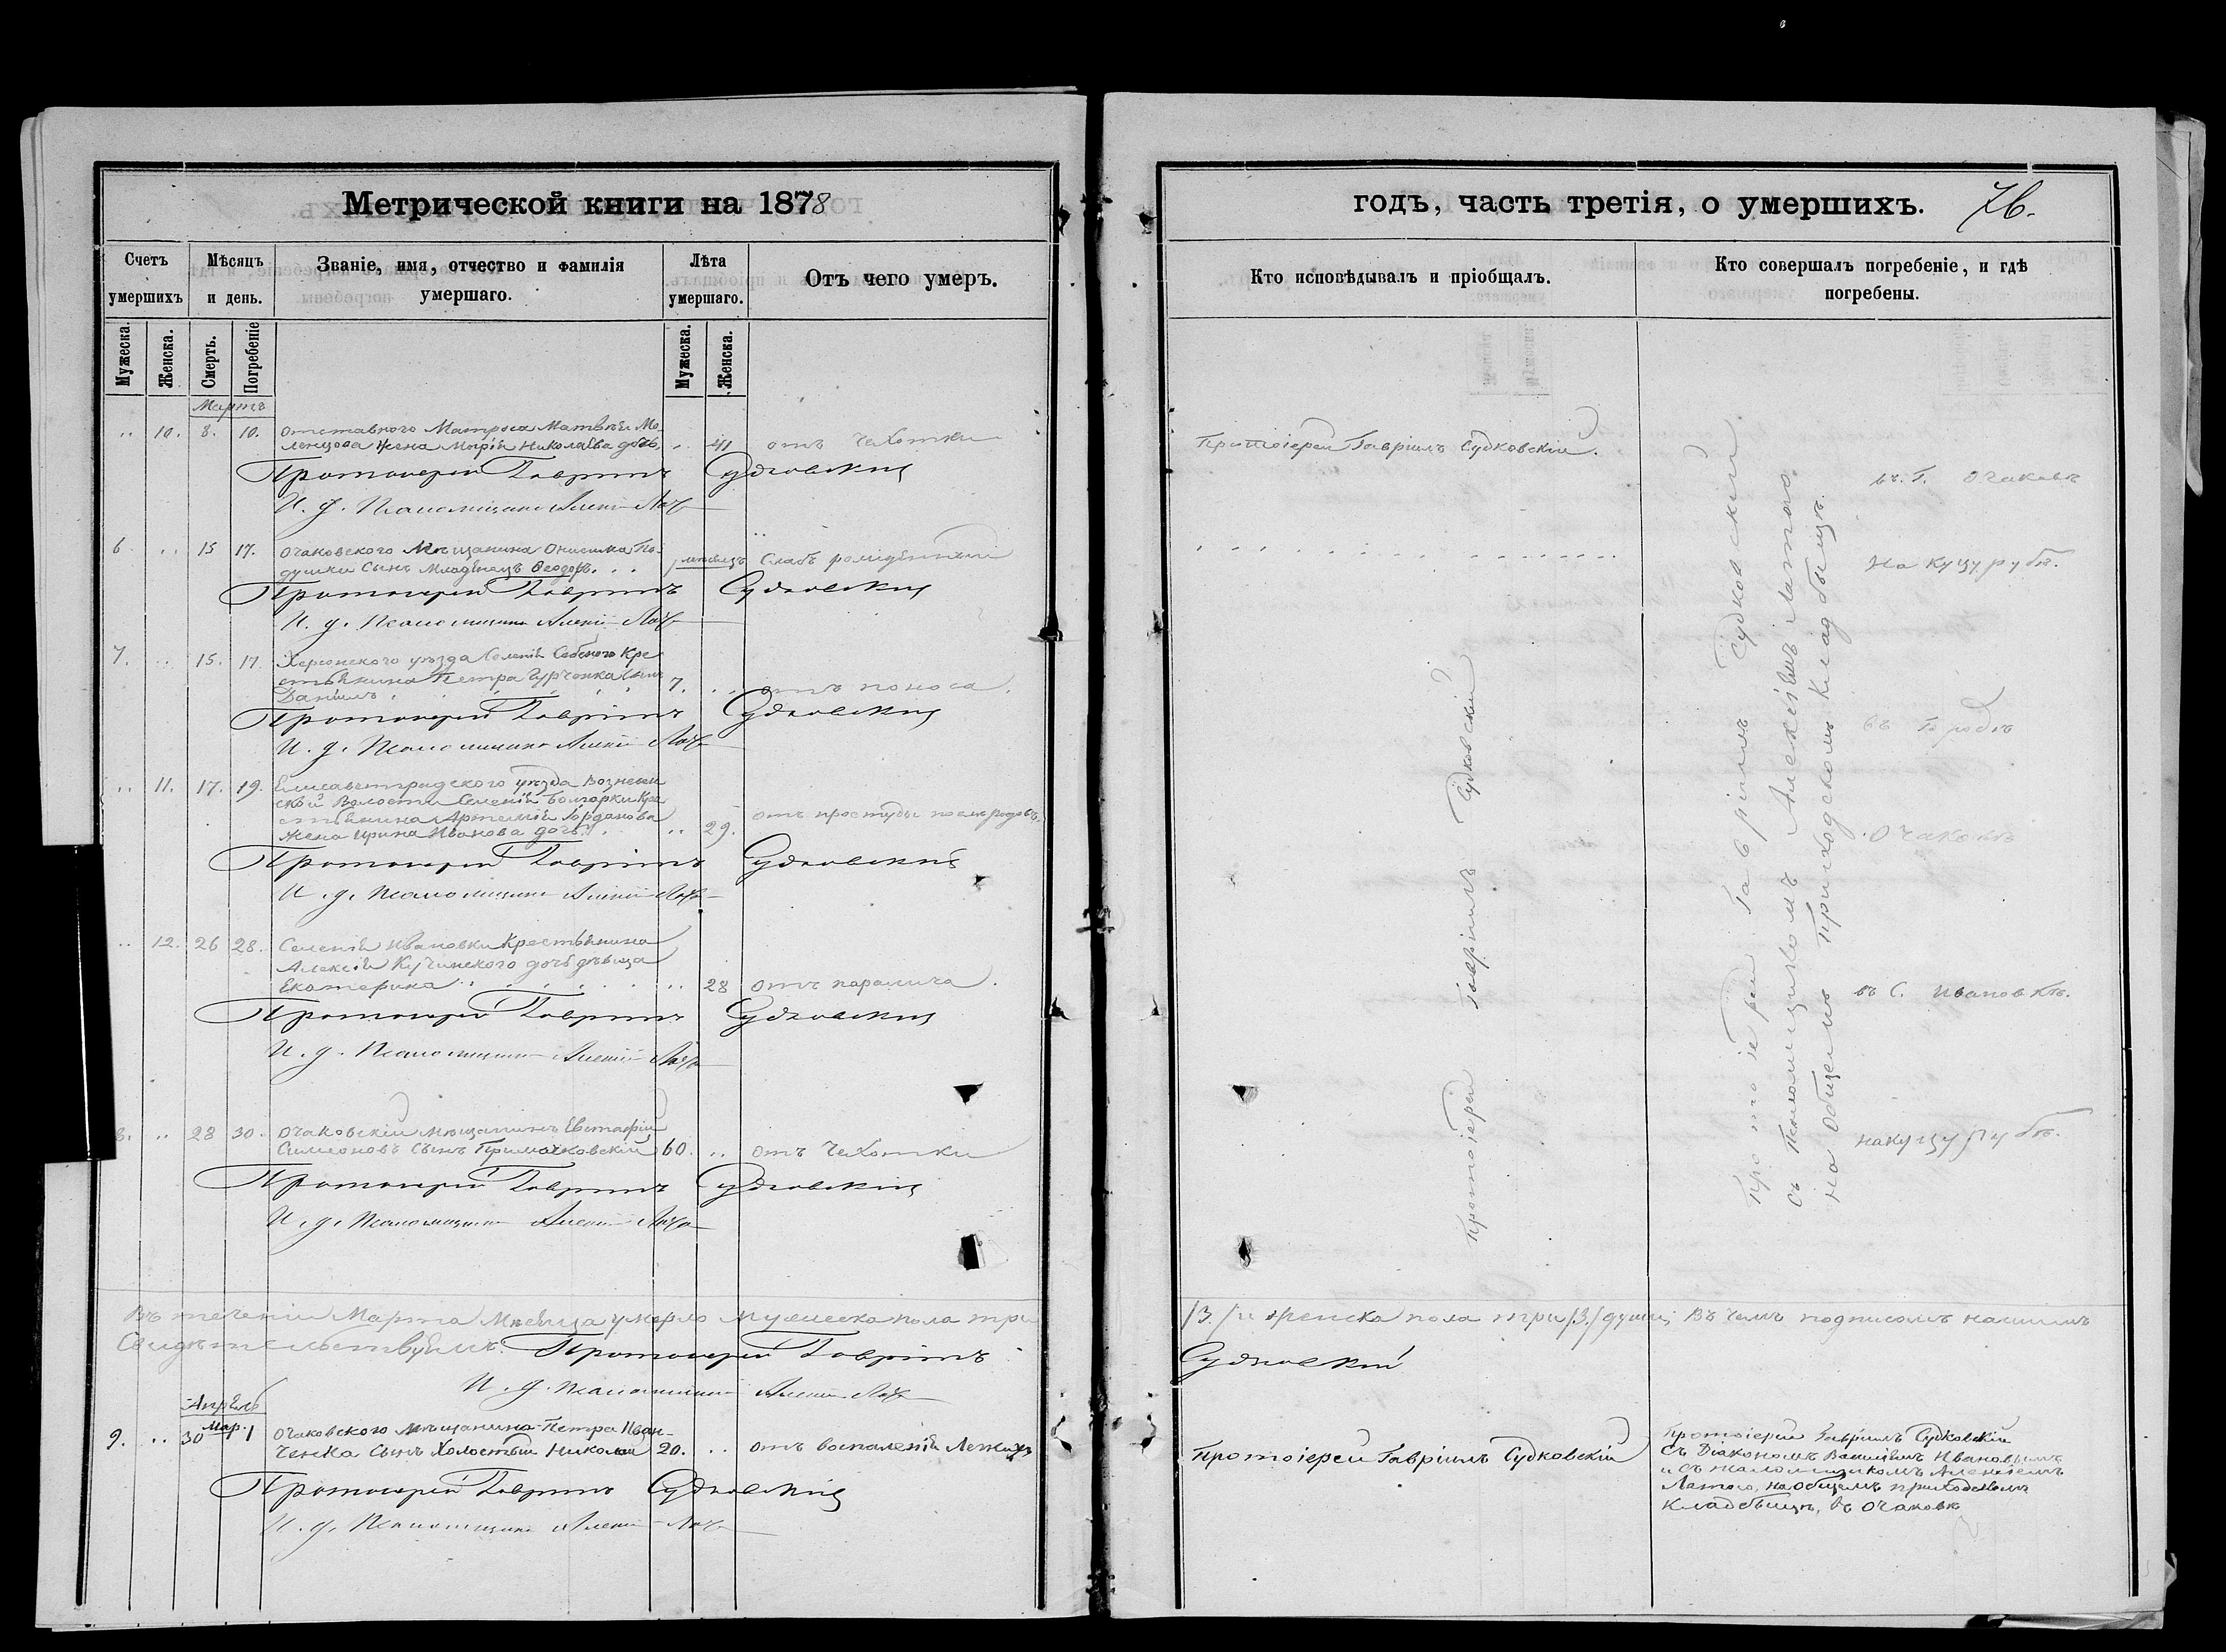 Метрической книги на 1878
годъ, часть третія, о умершихъ. 76.
Счетъ умершихъ
Мѣсяцъ и день.
Званіе, имя, отчество и фамилія умершаго.
Лѣта умершаго.
Отъ чего умеръ.
Кто исповѣдывалъ и пріобщалъ.
Кто совершалъ погребеніе, и гдѣ погребены.
Мужеска.
Женска.
Смерть.
Погребеніе
Мужеска.
Женска.
Мартъ
10. 8. 10. Отставного Матроса Матвѣя
жена Марія Николаева дочь 41 отъ Чахотки
Протоіерей Гавріилъ Судковскій.
въ Г. Очаковѣ
Протоіерей Гавріилъ Судковскій
И. д. Псаломщика Алексій
6 15 17. Очаковского Мѣщанина Онисима По-
душки Сынъ Младенецъ Ѳеодоръ
на Куцурубѣ.
Протоіерей Гавріилъ Судковскій
И. д. Псаломщика Алексій
7. 15. 17. Херсонского уѣзда Селенія Кре
стьянина Петра Сынъ
Даніилъ 7. отъ поноса.
въ Городѣ
Протоіерей Гавріилъ Судковскій
И. д. Псаломщика Алексій
11. 17. 19. Елисаветградского уѣзда Вознесен
ской Волости Селенія Болгарки Кре
стьянина Артемія Іорданова
жена Ирина Иванова дочь 29. отъ простуды послѣ родовъ.
Очаковѣ
Протоіерей Гавріилъ Судковскій
И. д. Псаломщика Алексій
12. 26 28. Селенія Ивановки Крестьянина
Алексія Кучинского дочь дѣвица
Екатерина 28 отъ паралича.
въ С. Ивановкѣ.
Протоіерей Гавріилъ Судковскій
И. д. Псаломщика Алексій
8. 28 30. Очаковскій мѣщанинъ Евстафій
Симеоновъ Сынъ 60. отъ Чахотки
на Куцурубѣ.
Протоіерей Гавріилъ Судковскій
И. д. Псаломщика Алексій
Протоіерей Гавріилъ Судковскій
Протоіерей Гавріилъ Судковскій
съ Псаломщикомъ Алексѣемъ Латого
на Общемъ Приходскомъ Кладбищѣ.
Въ теченіи Марта Мѣсяца умерло мужеска пола три
/3./ и женска пола три /3./ души; Въ чемъ подписомъ нашимъ
Свидѣтельствуемъ. Протоіерей Гавріилъ
Судковскій
И. д. Псаломщика Алексій
Апрѣль
9. 30 Мар. 1 Очаковского мѣщанина Петра Иван-
ченка Сынъ Холостый Николай 20. отъ воспаленія Легкихъ
Протоіерей Гавріилъ Судковскій
Протоіерей Гавріилъ Судковскій
съ Діакономъ Ивановымъ
и съ псаломщикомъ Алексѣемъ
Латого, на Общемъ приходскомъ
Кладбищѣ, въ Очаковѣ
Протоіерей Гавріилъ Судковскій
И. д. Псаломщика Алексій